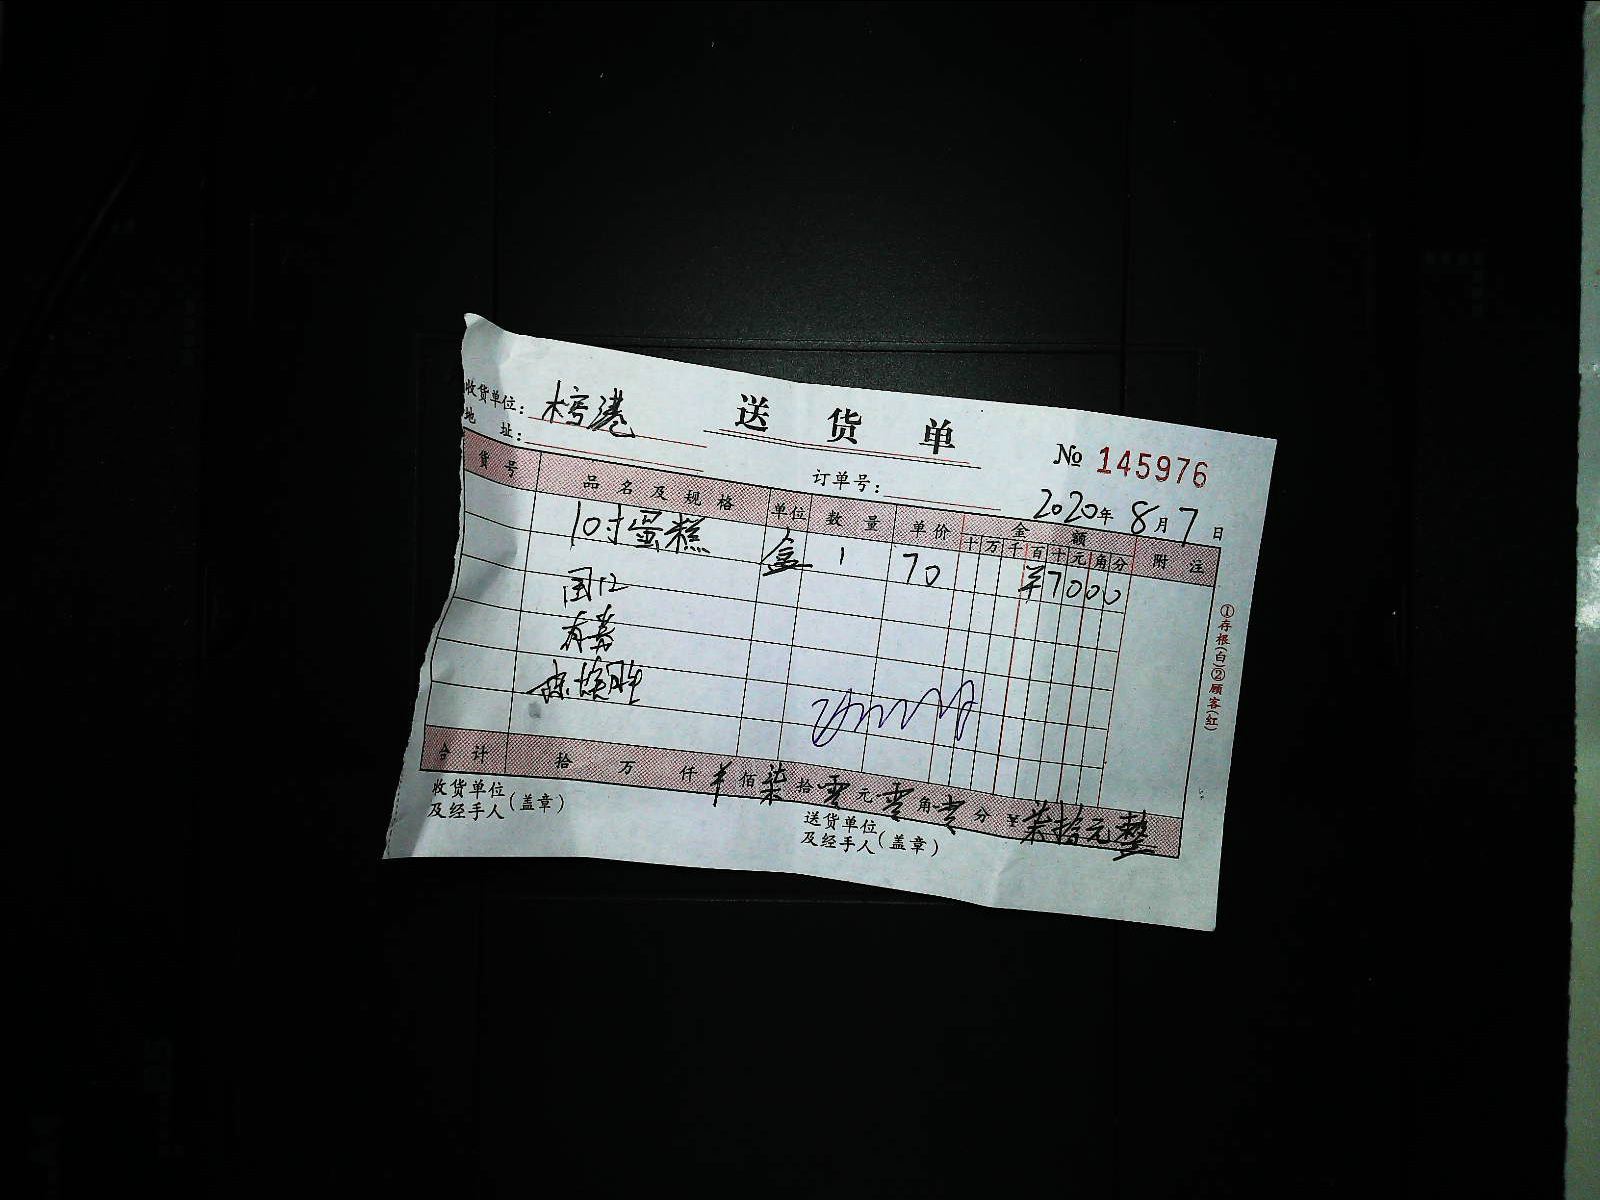 送货单
收货单位:
地址:
№ 145976
订单号:
2020年8月7日
货号 品名及规格 单位 数量 单价 金额 附注
十万千百十元角分
10寸蛋糕 盒 1 70 ¥7000
合计 拾 万 仟 ¥佰柒拾零元零角零分 ¥柒拾元整
收货单位
及经手人(盖章)
送货单位
及经手人(盖章)
①存根(白)②顾客(红)